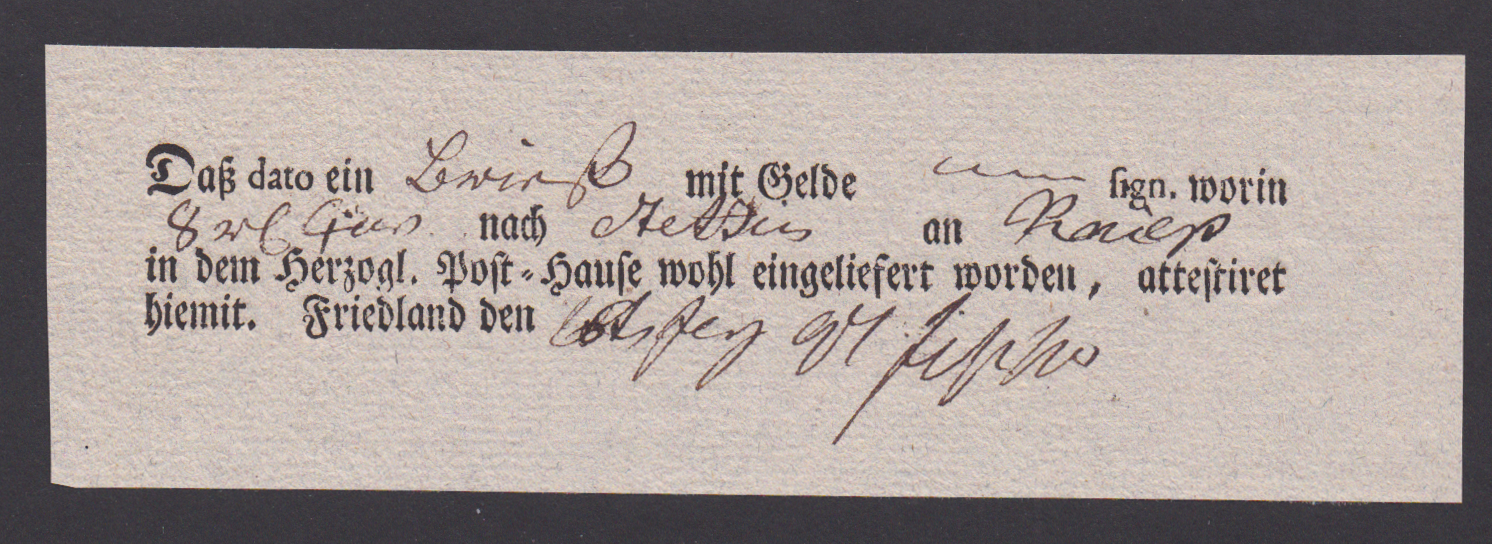 Daß dato ein Brieff mit Gelde sign. worin
8 rl nach Stettin an
in dem Herzogl. Post-Hause wohl eingeliefert worden, attestiret
hiemit. Friedland den